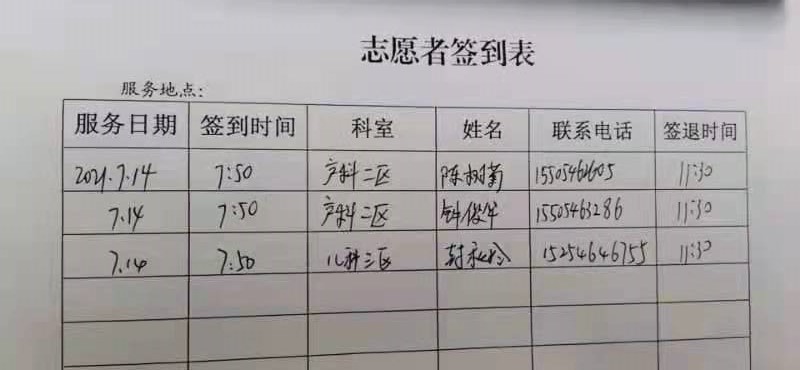 志愿者签到表
服务地点:
服务日期 签到时间 科室 姓名 联系电话 签退时间
2021.7.14 7:50 产科二区 陈树菊 15505462605 11:30
7.14 7:50 产科二区 15505463286 11:30
7.14 7:50 儿科三区 15254646755 11:30